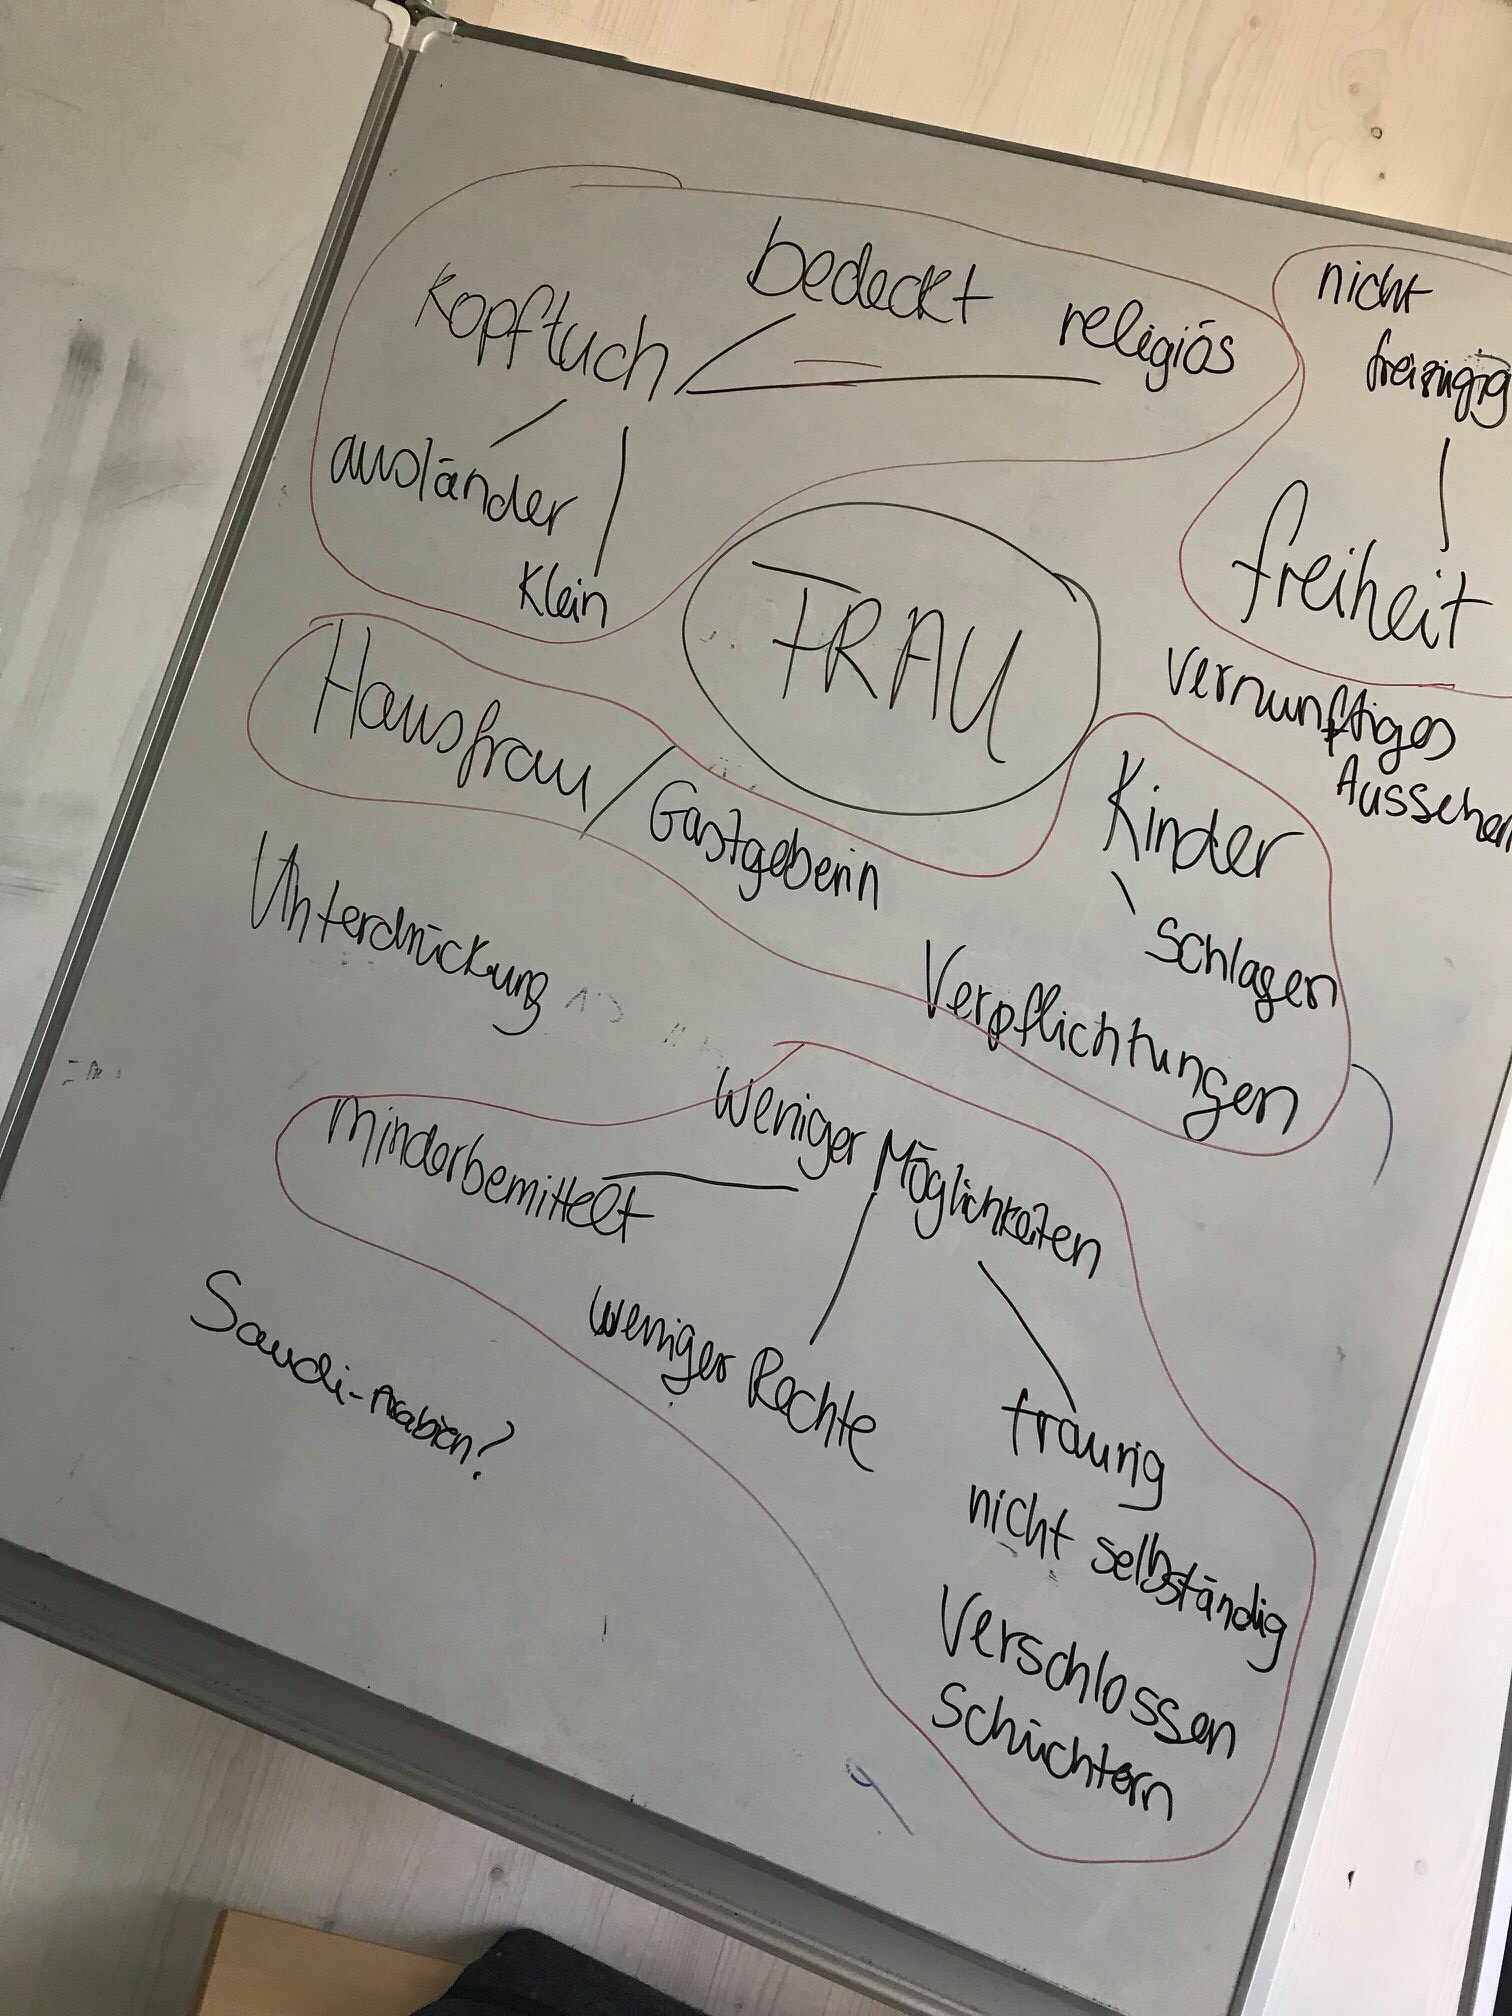 bedeckt
Kopftuch
religiös
ausländer
Klein
nicht
freizügig
freiheit
FRAU
vernunftiges
Aussehen
Hausfrau / Gastgeberin
Kinder
schlagen
Verpflichtungen
Unterdrückung
weniger Möglichkeiten
minderbemittelt
weniger Rechte
traurig
nicht selbständig
Verschlossen
Schüchtern
Saudi-Arabien?